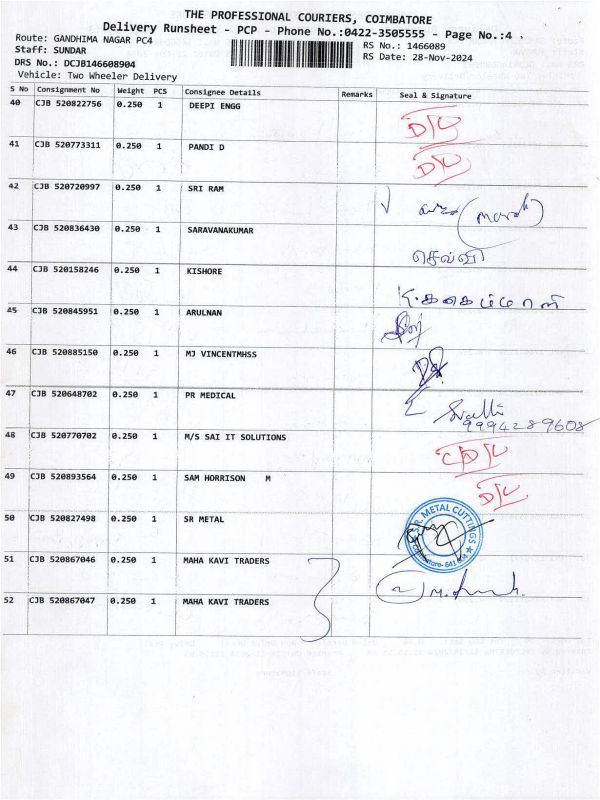 THE PROFESSIONAL COURIERS, COIMBATORE
Delivery Runsheet - PCP - Phone No.:0422-3505555 - Page No.:4
Route: GANDHIMA NAGAR PC4 RS No.: 1466089
Staff: SUNDAR RS Date: 28-Nov-2024
DRS No.: DCJB146608904
Vehicle: Two Wheeler Delivery
S No Consignment No Weight PCS Consignee Details Remarks Seal & Signature
40 CJB 520822756 0.250 1 DEEPI ENGG D/L
41 CJB 520773311 0.250 1 PANDI D D/L
42 CJB 520720997 0.250 1 SRI RAM
43 CJB 520836430 0.250 1 SARAVANAKUMAR செல்வி
44 CJB 520158246 0.250 1 KISHORE
45 CJB 520845951 0.250 1 ARULNAN
46 CJB 520885150 0.250 1 MJ VINCENTMHSS
47 CJB 520648702 0.250 1 PR MEDICAL
9994289608
48 CJB 520770702 0.250 1 M/S SAI IT SOLUTIONS D/L
49 CJB 520893564 0.250 1 SAM HORRISON M D/L
50 CJB 520827498 0.250 1 SR METAL S.R. METAL CUTTINGS
51 CJB 520867046 0.250 1 MAHA KAVI TRADERS
52 CJB 520867047 0.250 1 MAHA KAVI TRADERS